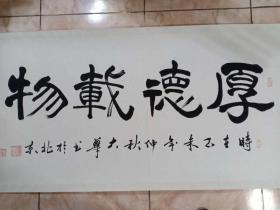 厚德載物
時在乙未年仲秋大華书於北京